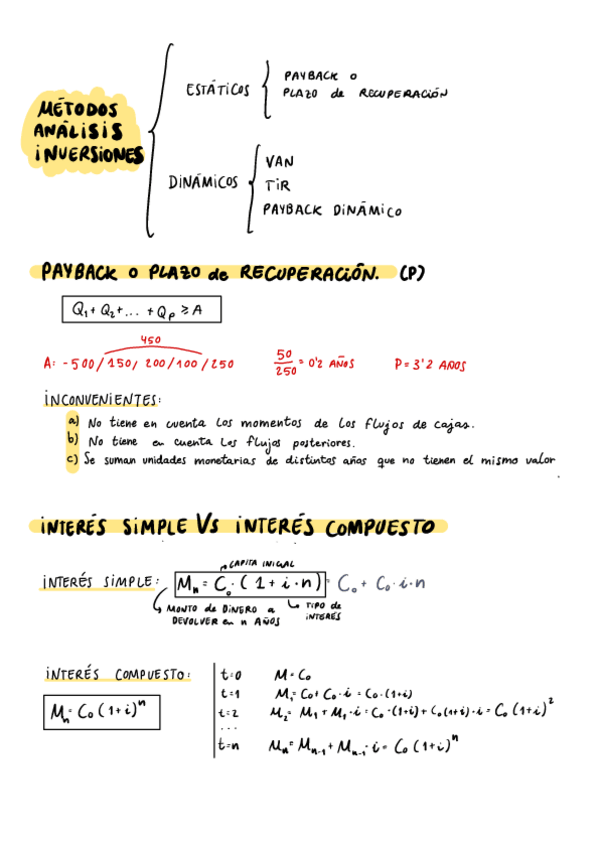 MÉTODOS
ANÁLISIS
INVERSIONES
ESTÁTICOS
PAYBACK o
PLAZO de RECUPERACIÓN
DINÁMICOS
VAN
TIR
PAYBACK DINÁMICO
PAYBACK O PLAZO de RECUPERACIÓN. (P)
Q₁ + Q₂ + ... + Qₚ ≥ A
450
A: -500/150/200/100/250
50/250 = 0'2 AÑOS
P = 3'2 AÑOS
INCONVENIENTES:
a) No tiene en cuenta los momentos de los flujos de cajas.
b) No tiene en cuenta los flujos posteriores.
c) Se suman unidades monetarias de distintas años que no tienen el mismo valor
INTERÉS SIMPLE Vs INTERÉS COMPUESTO
CAPITA INICIAL
INTERÉS SIMPLE: Mₙ = C₀ · (1 + i · n) = C₀ + C₀ · i · n
MONTO de DINERO a
DEVOLVER en n AÑOS
TIPO de
INTERÉS
INTERÉS COMPUESTO:
Mₙ = C₀ (1+i)ⁿ
t=0 M = C₀
t=1 M₁ = C₀ + C₀ · i = C₀ · (1+i)
t=2 M₂ = M₁ + M₁ · i = C₀ · (1+i) + C₀ (1+i) · i = C₀ (1+i)²
...
t=n Mₙ = Mₙ₋₁ + Mₙ₋₁ · i = C₀ (1+i)ⁿ